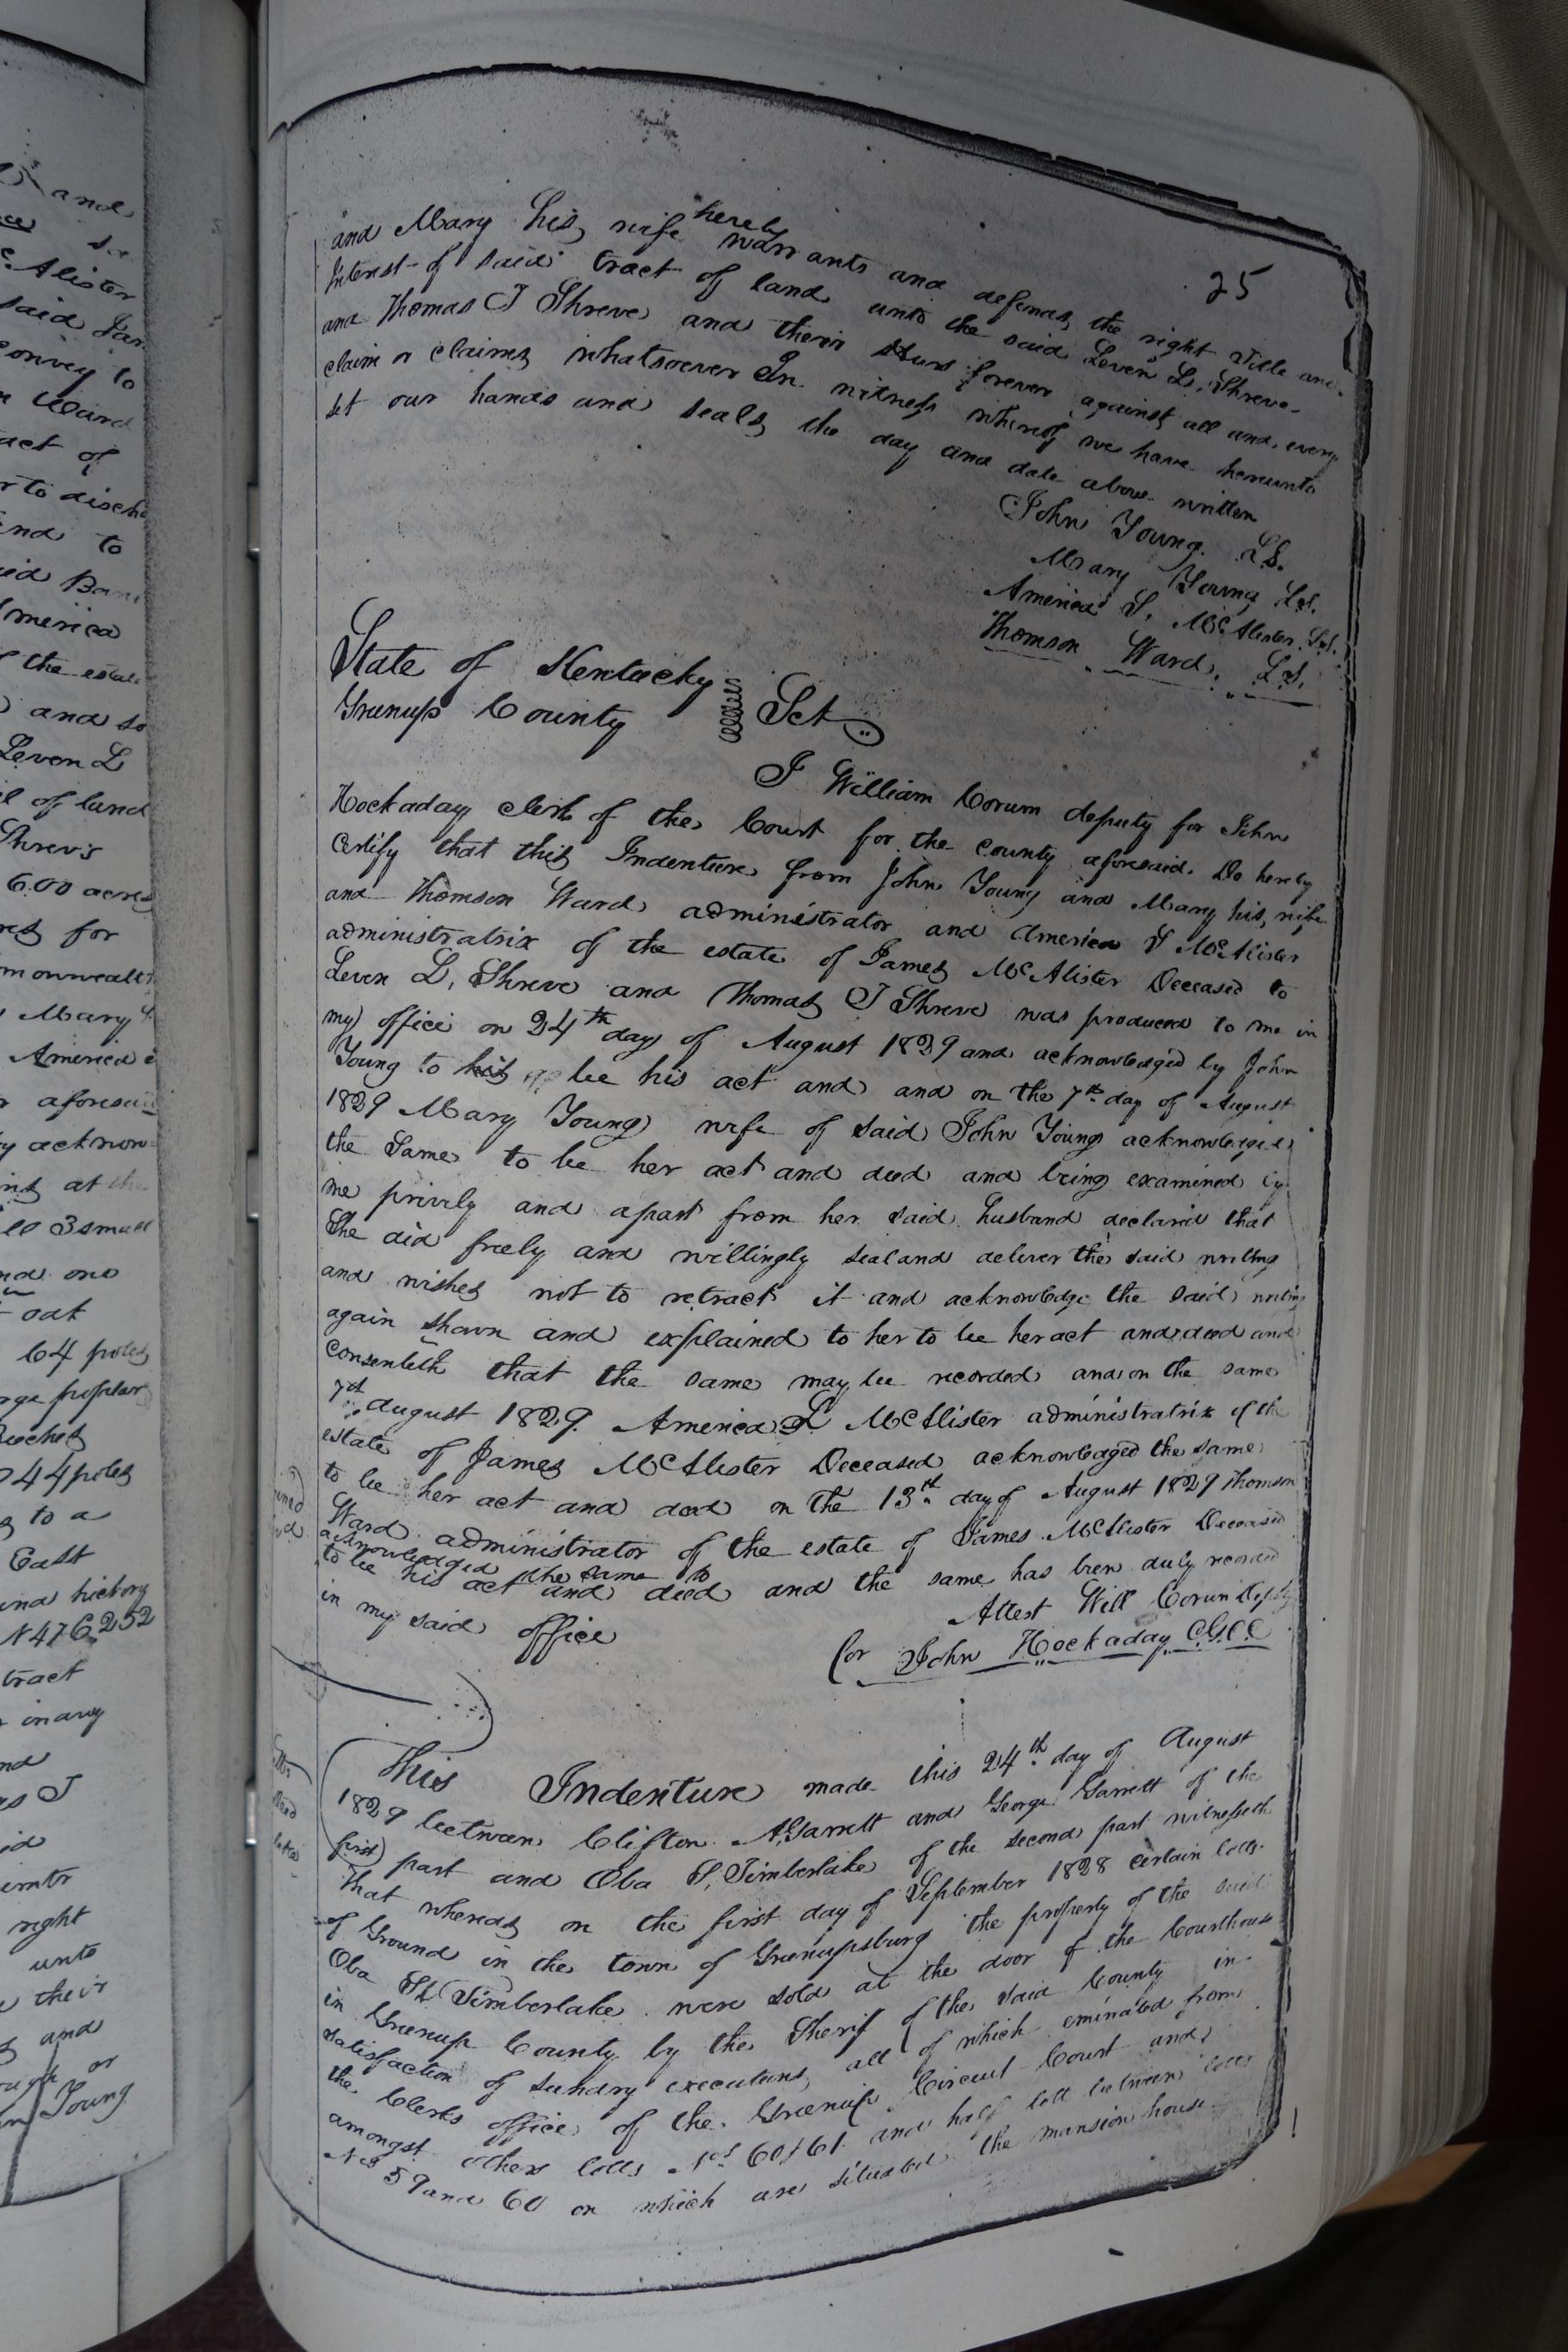 25
and Mary his wife hereby warrants and defends the right title and
Interest of said tract of land unto the said Leven L, Shreve
and Thomas J Shreve and their Heirs forever against all and every
claim or claims whatsoever In witness whereof we have hereunto
set our hands and seals the day and date above written
John Young. L.S.
Mary Young L.S.
America S. McAlister L.S.
Thomson Ward. L.S.
State of Kentucky
Greenup County Sct
I William Corum deputy for John
Hockaday clerk of the Court for the county aforesaid. Do hereby
certify that this Indenture from John Young and Mary his wife
and Thomson Ward administrator and America S McAlister
administratrix of the estate of James McAlister Deceased to
Leven L, Shreve and Thomas J Shreve was produced to me in
my office on 24th day of August 1829 and acknowledged by John
Young to be his act and and on the 7th day of August
1829 Mary Young wife of said John Young acknowledged
the Same to be her act and deed and being examined by
me privily and apart from her said husband declared that
She did freely and willingly seal and deliver the said writing
and wishes not to retract it and acknowledge the said writing
again shown and explained to her to be her act and deed and
consenteth that the same may be recorded and on the same
7th august 1829. America McAlister administratrix of the
estate of James McAlister Deceased acknowledged the same
to be her act and deed on the 13th day of August 1829 Thomson
Ward administrator of the estate of James McAlister Deceased
acknowledged the same to
to be his act and deed and the same has been duly recorded
in my said office Attest Will Corum Deputy
for John Hockaday C.G.C.C
This Indenture made this 24th day of August
1829 between Clifton A, Garrett and George Garrett of the
first part and Oba S, Timberlake of the second part witnesseth
That whereas on the first day of September 1828 certain lotts
of Ground in the town of Greenupsburg the property of the said
Oba Timberlake were sold at the door of the Courthouse
in Greenup County by the Sherif of the said County in
satisfaction of sundry executions, all of which eminated from
the Clerks office of the Greenup Circuit Court and
amongst others lotts Nos 60 & 61 and half lott between lotts
Nos 59 and 60 on which are situated the mansion house